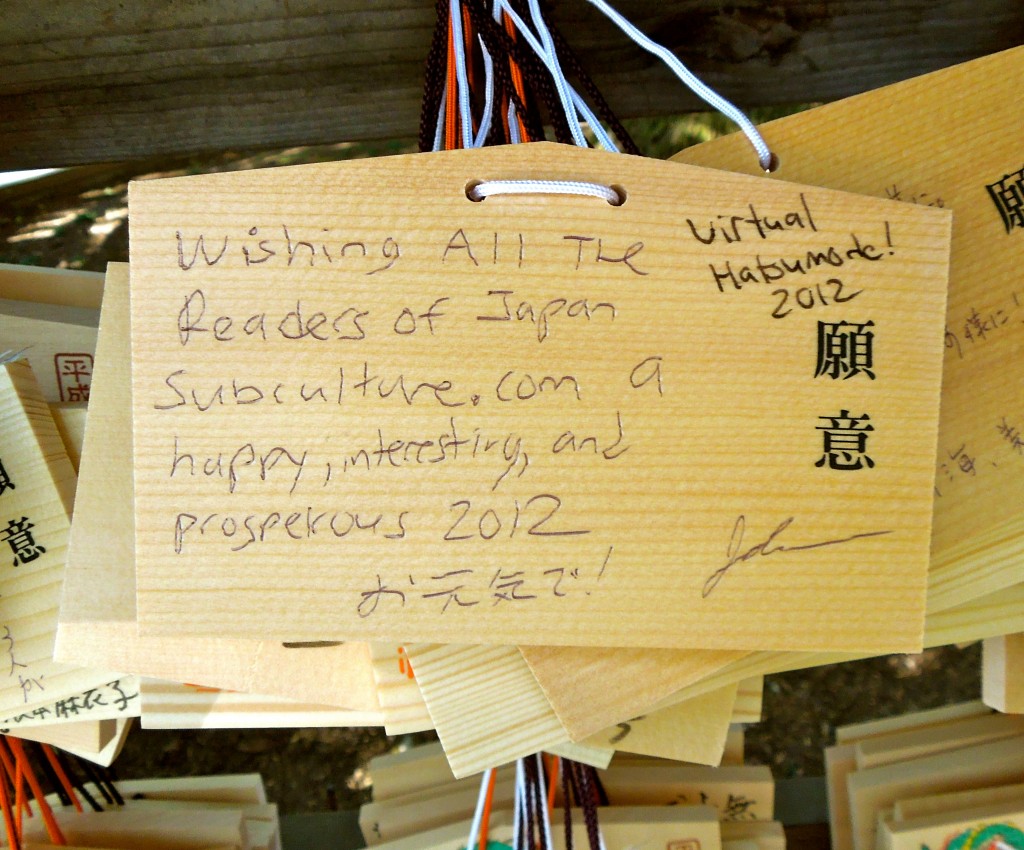 Wishing All The
Readers of Japan
Subculture.com a
happy, interesting, and
prosperous 2012
お元気で!
Virtual
Hatsumode!
2012
願意
John
願
平成
願意
麻衣子
無